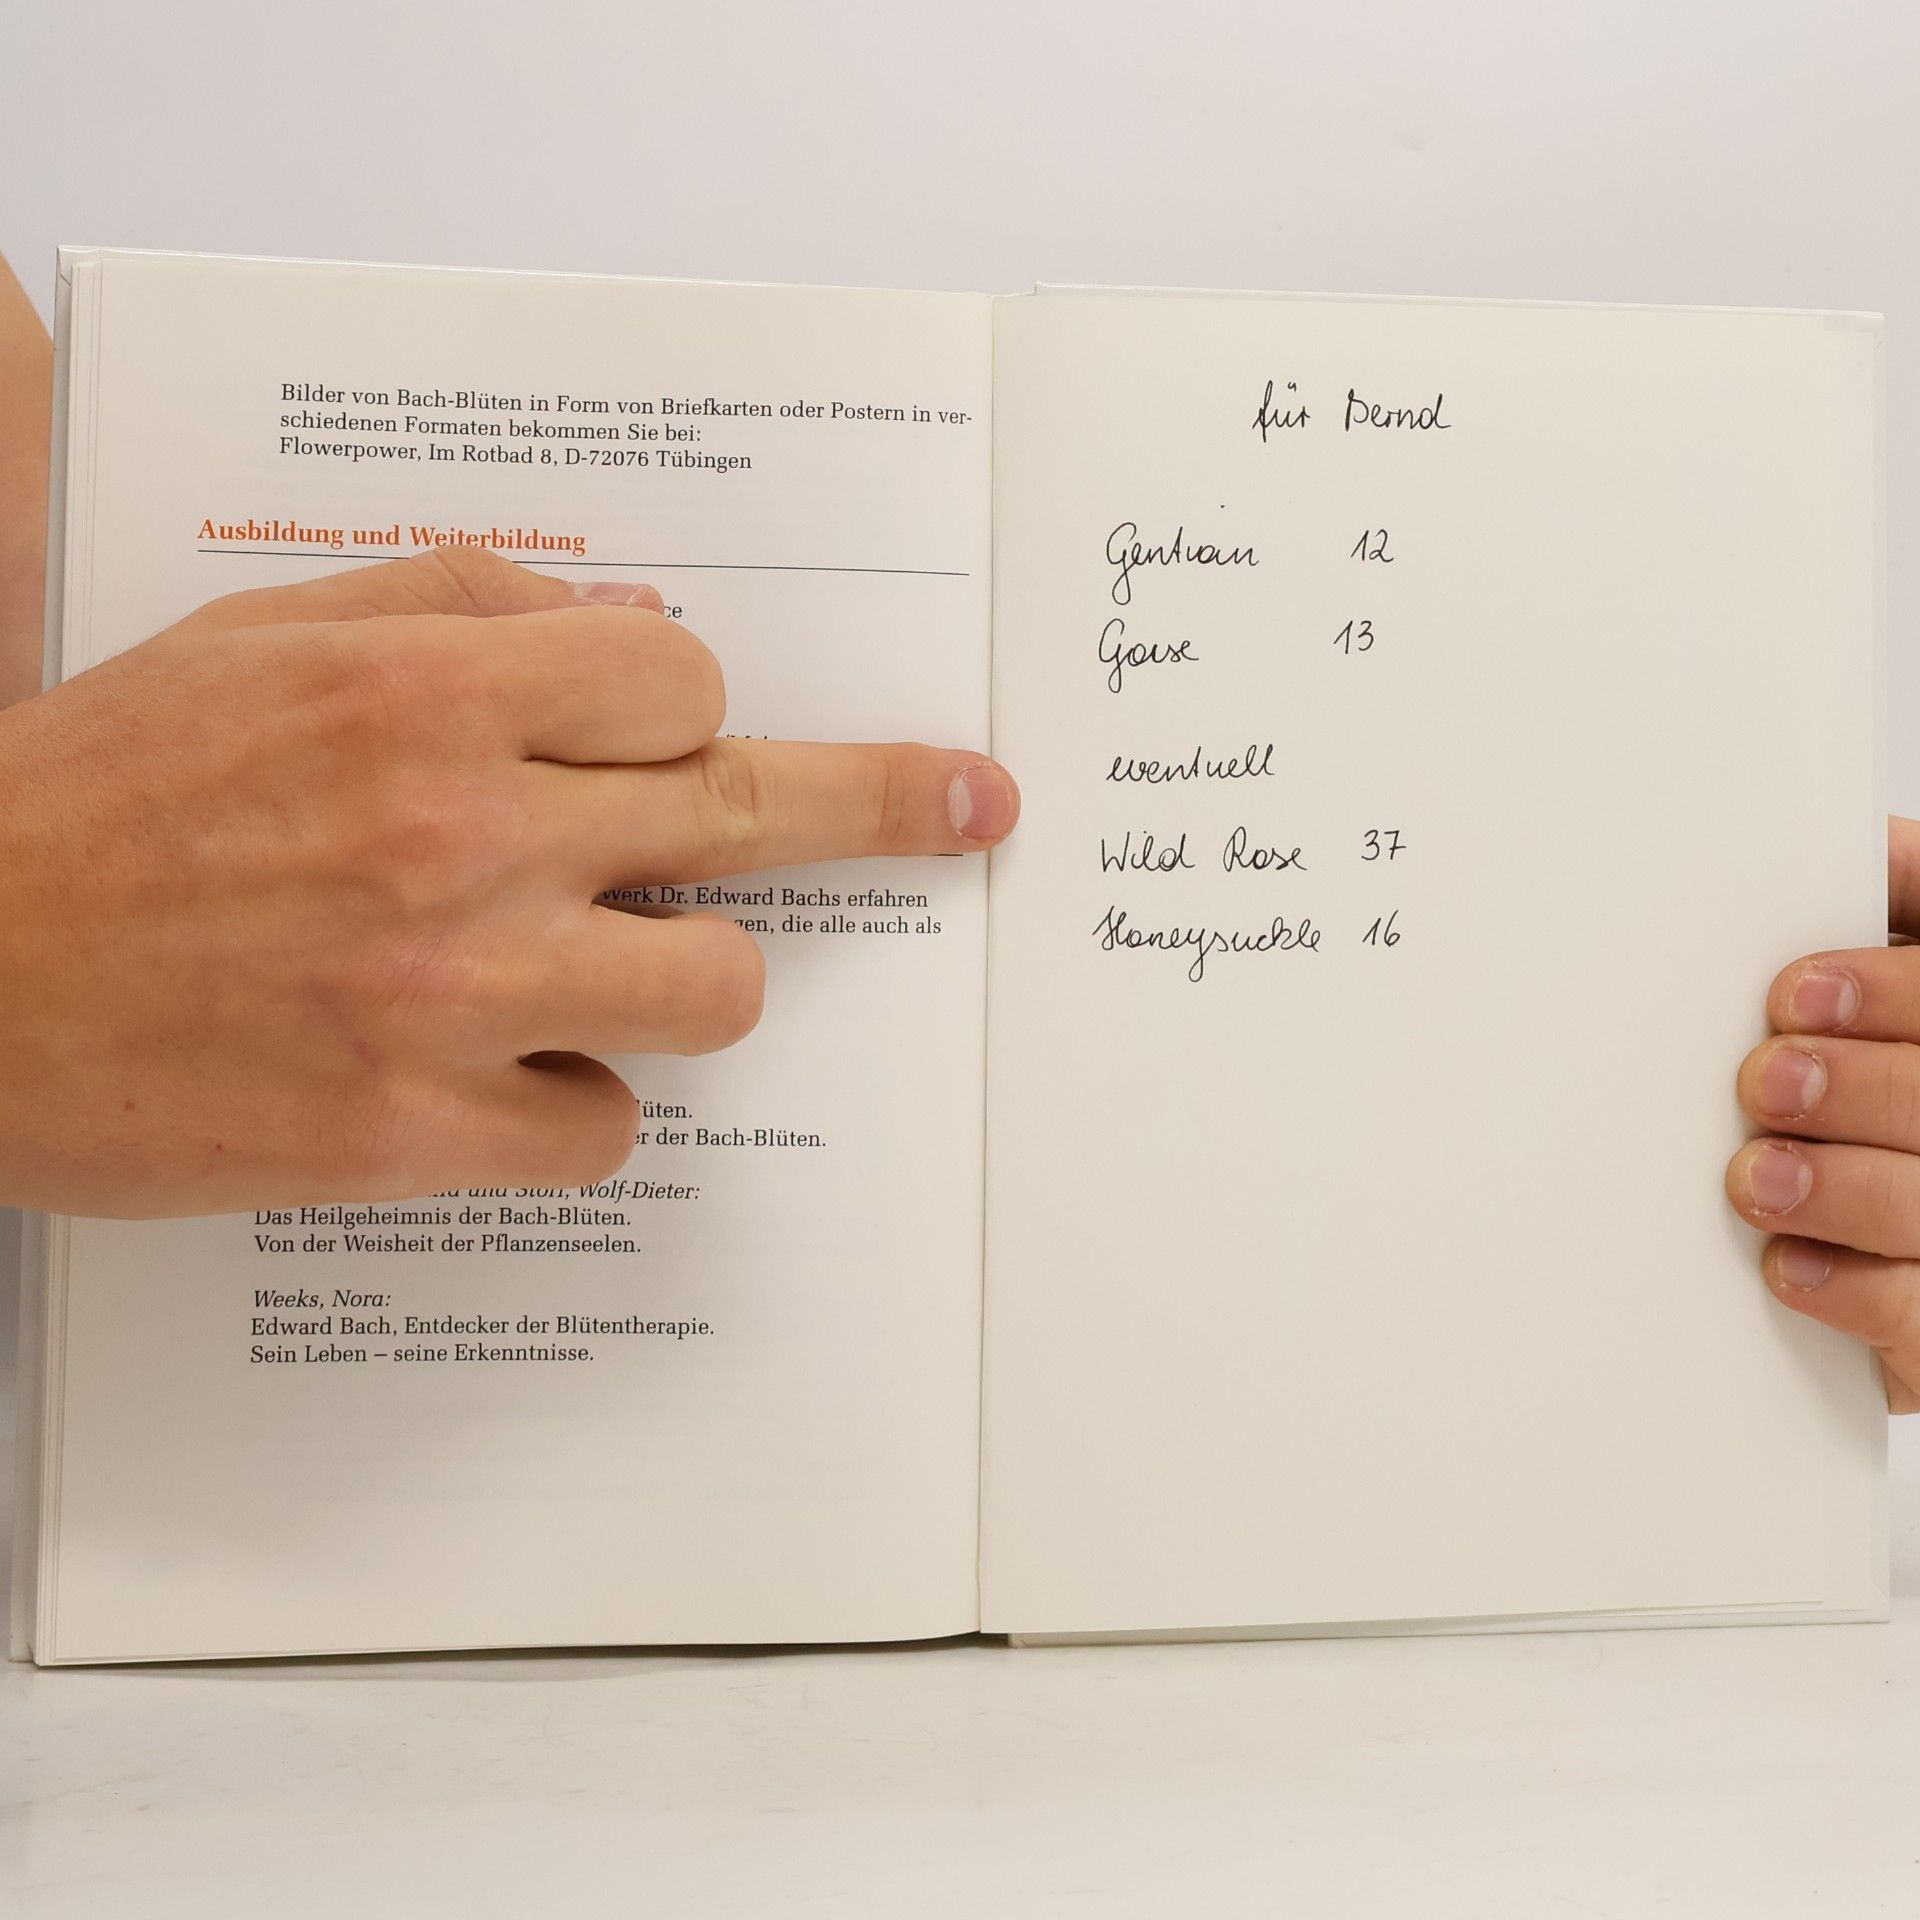 Bilder von Bach-Blüten in Form von Briefkarten oder Postern in ver-
schiedenen Formaten bekommen Sie bei:
Flowerpower, Im Rotbad 8, D-72076 Tübingen
Ausbildung und Weiterbildung
Werk Dr. Edward Bachs erfahren
die alle auch als
der Bach-Blüten.
und Storl, Wolf-Dieter:
Das Heilgeheimnis der Bach-Blüten.
Von der Weisheit der Pflanzenseelen.
Weeks, Nora:
Edward Bach, Entdecker der Blütentherapie.
Sein Leben – seine Erkenntnisse.
für Bernd
Gentian 12
Gorse 13
eventuell
Wild Rose 37
Honeysuckle 16